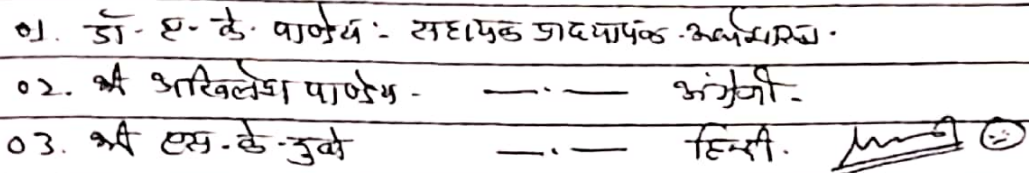 01. डॉ. ए. के. पाण्डेय: - सहायक प्राध्यापक - अर्थशास्त्र.
02. श्री अखिलेश पाण्डेय - —.— अंग्रेजी.
03. श्री एस. के. दुबे —.— हिन्दी.